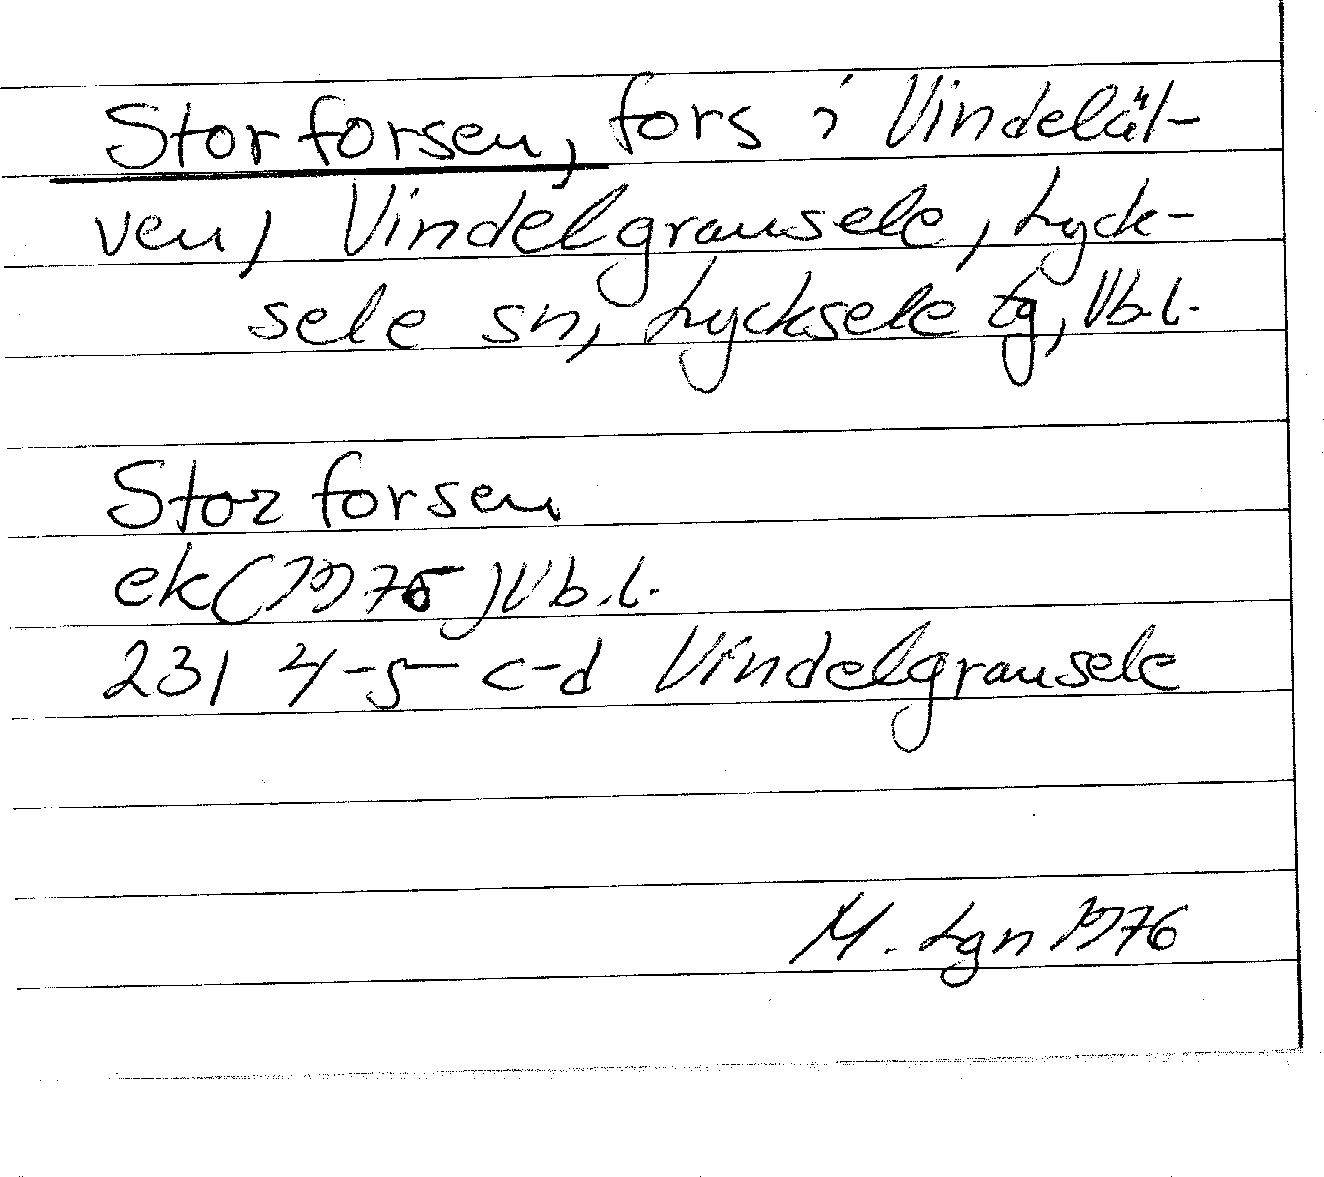 Storforsen, fors i Vindeläl-
ven, Vindelgransele, Lyck-
sele sn, Lycksele tg, Vb.l.
Storforsen
ek (1975) Vb.l.
231 4-5 c-d Vindelgransele
M. Lgn 1976